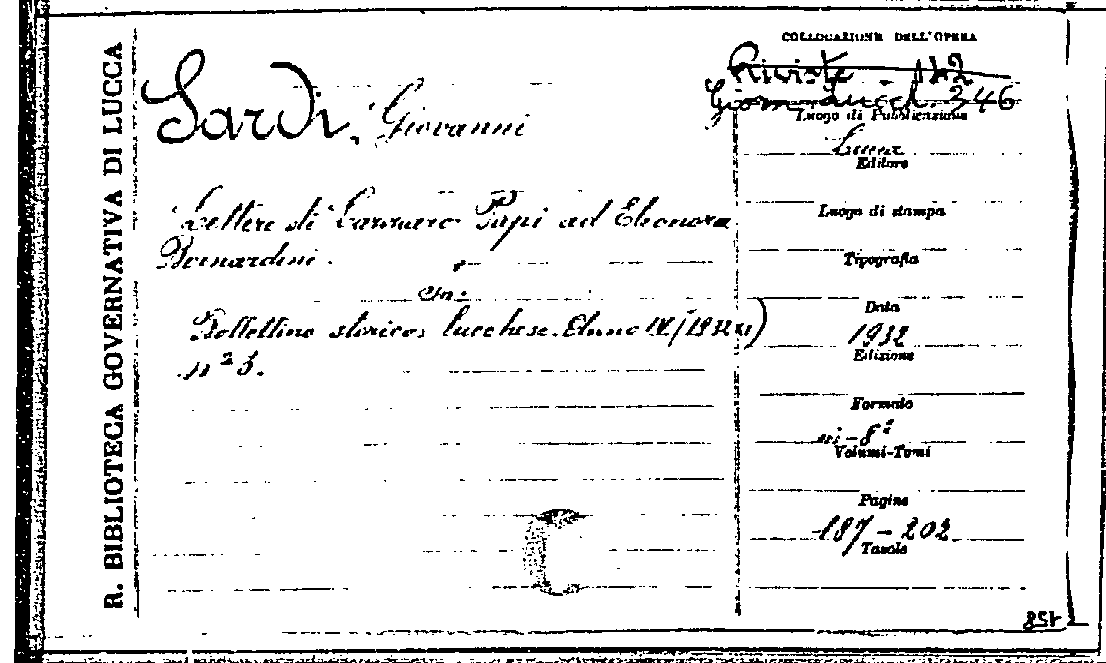 R. BIBLIOTECA GOVERNATIVA DI LUCCA
Sardi, Giovanni
Lettere di Lazzaro Papi ad Eleonora
Bernardini.
In:
Bollettino storico lucchese. Anno IV (1932 XI)
n° 3.
COLLOCAZIONE DELL'OPERA
Riviste 142
Giorn. Lucch. 346
Luogo di Pubblicazione
Lucca
Editore
Luogo di stampa
Tipografia
Data
1932
Edizione
Formato
in-8°
Volumi-Tomi
Pagine
187-202
Tavole